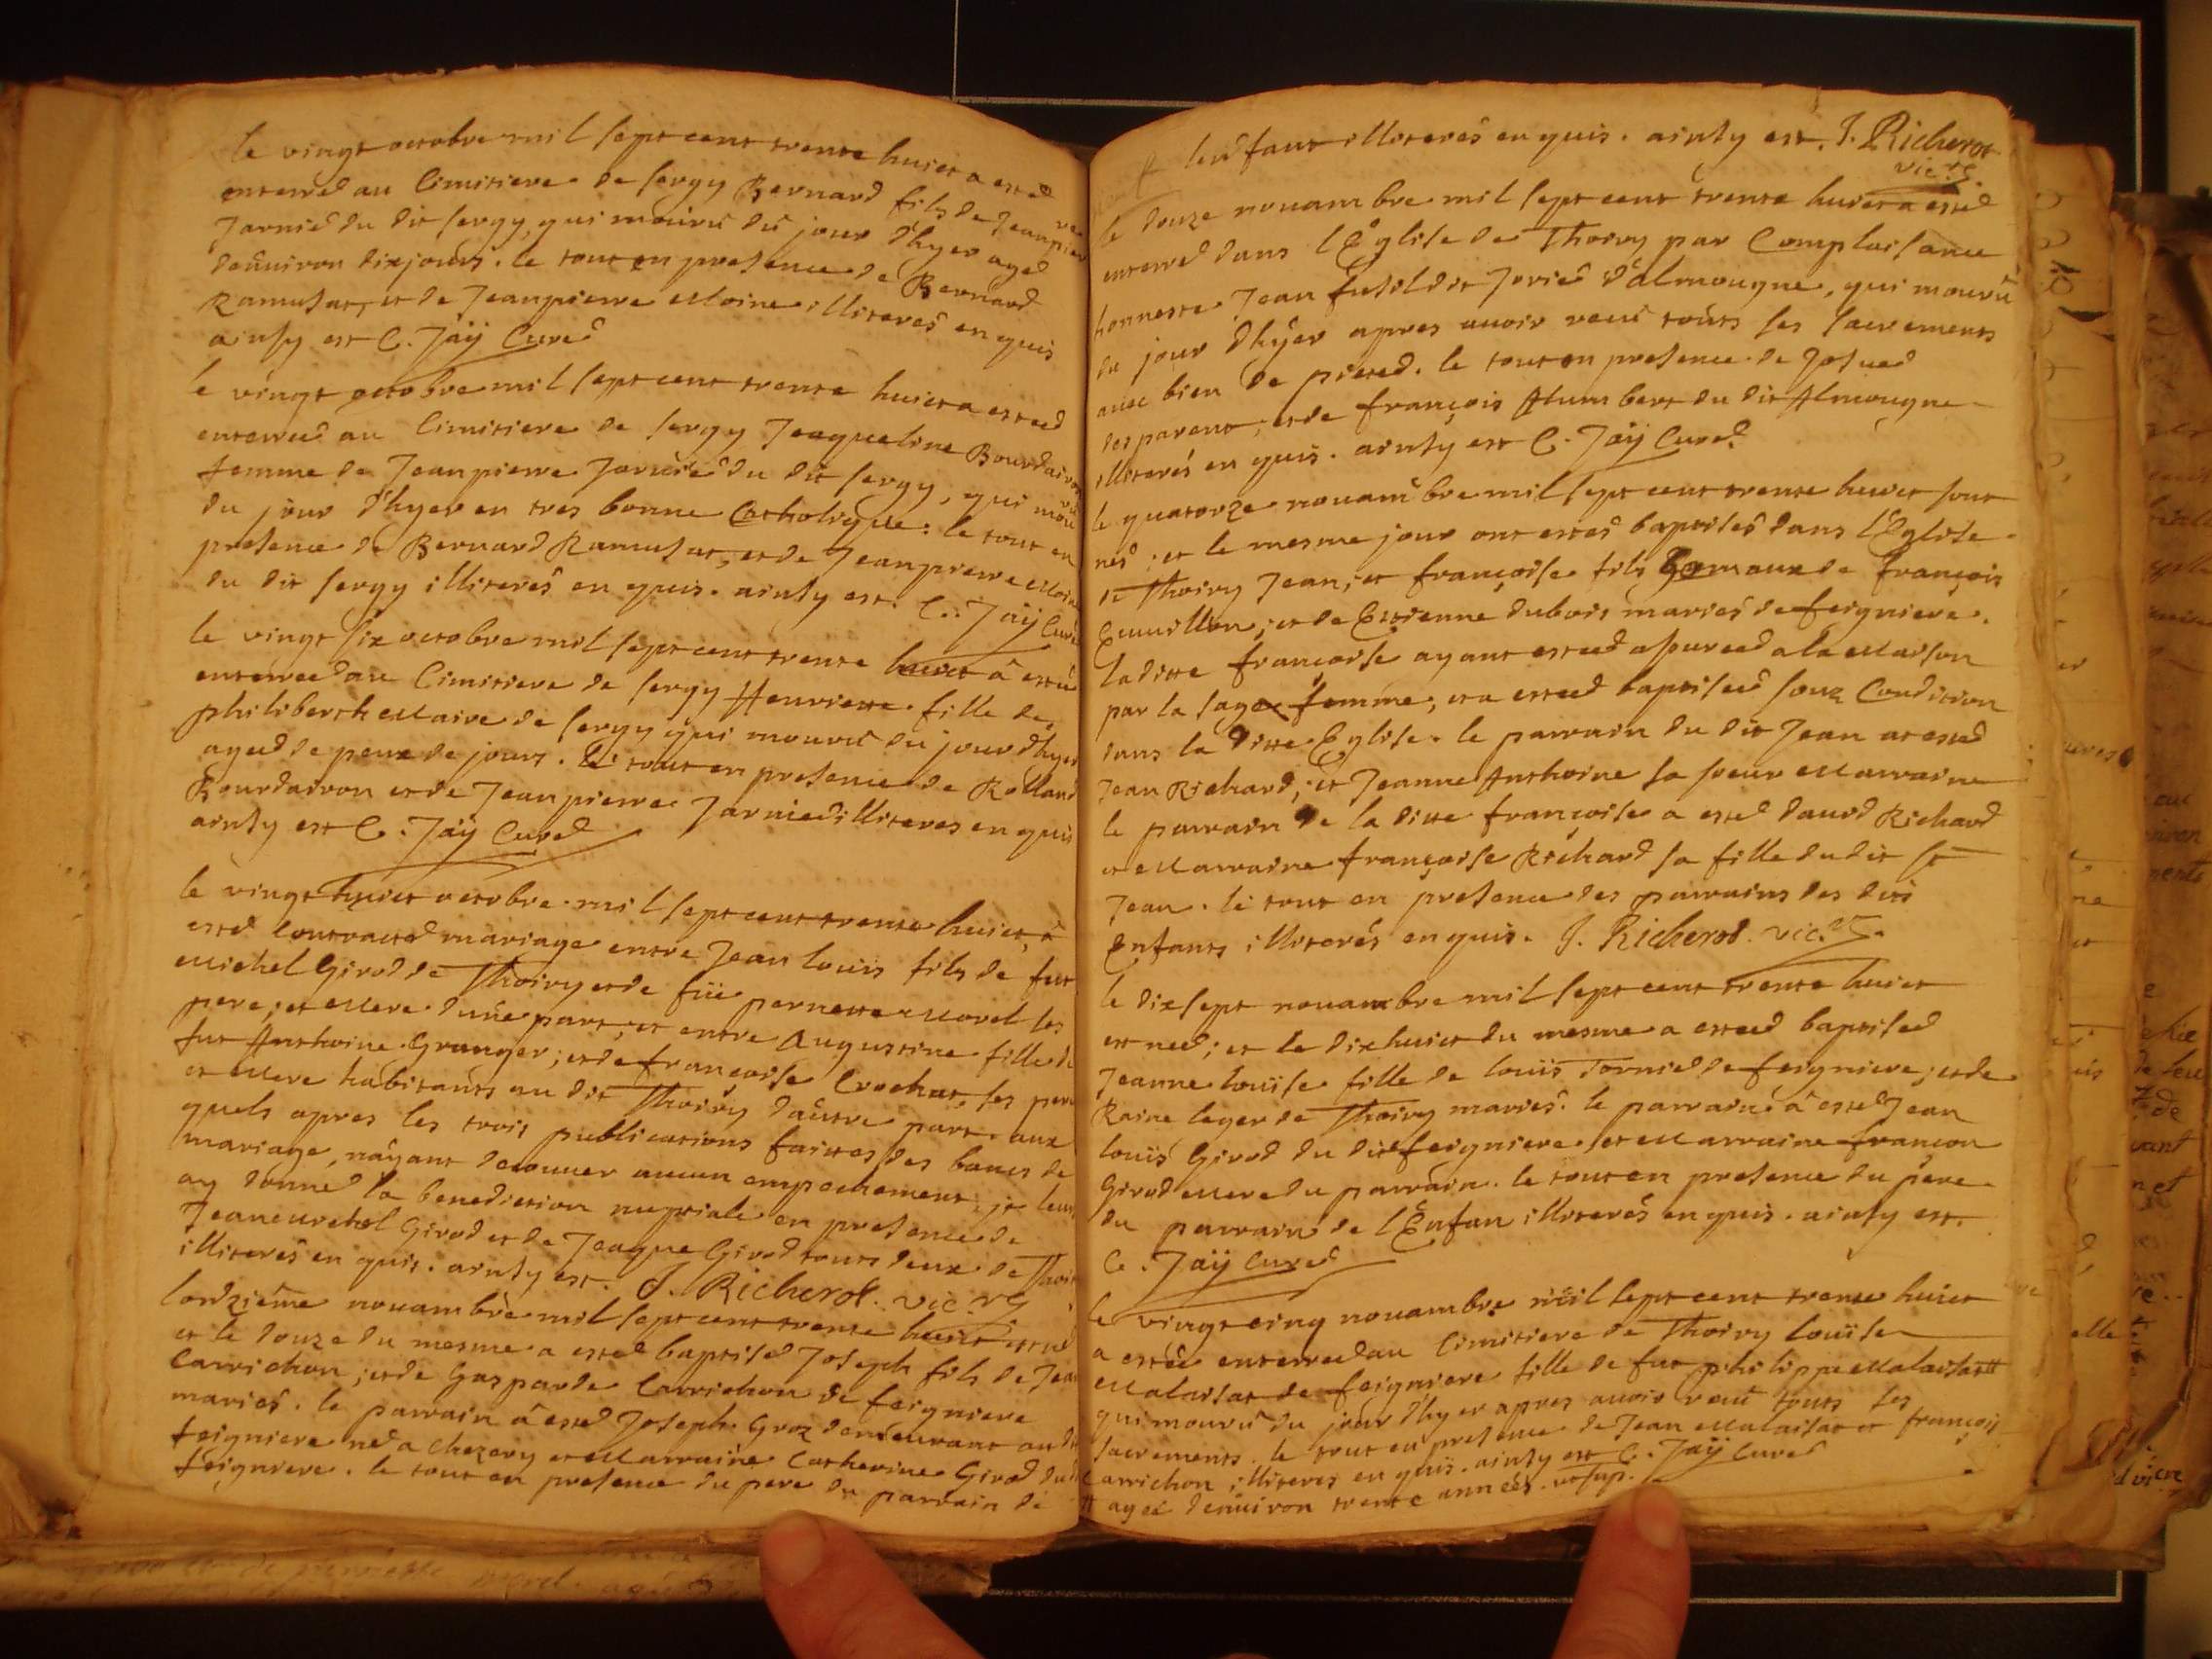 le vingt octobre mil sept cent trente huict a esté
enterré au Cimitiere de sergy Bernard fils de Jeanpierre
Jarnié du dit sergy, qui mourû du jour d'hyer agé
d'enuiron dix jours. le tout en presence de Bernard
Ramusat, et de Jeanpierre Moine illiterés enquis
ainsy est C. Jaÿ Curé
le vingt octobre mil sept cent trente huict a esteé
enterreé au Cimitiere de sergy Jeaqueline Bourdairon
femme de Jeanpierre Jarnié du dit sergy, qui mourû
du jour d'hyer en tres bonne Catholique. le tout en
presence de Bernard Ramusat, et de Jeanpierre Moine
du dit sergy illiterés en quis. ainsy est. C. Jaÿ Curé
le vingt six octobre mil sept cent trente huict â esteé
enterreé au Cimitiere de sergy Henriette fille de
philiberth Maire de sergy qui mourû du jour d'hyer
ageé de peux de jours. le tout en presence de Rolland
Bourdairon et de Jeanpierre Jarnié illiteres en quis
ainsy est C. Jaÿ Curé
le vingt huict octobre mil sept cent trente huict, â
esté Contracté mariage entre Jean louis fils de fut
Michel Girod de Thoiry et de füe pernette Morel les
pere, et Mere d'une part, et entre Augustine fille de
fut Anthoine Granger, et de françoise Crochat, ses pere
et Mere habitants au dit Thoiry d'autre part. aux
quels apres les trois publications faittes des bancs de
mariage, n'ayant decouuer aucun empechement, je leur
ay donné la benediction nuptiale en presence de
Jean Michel Girod et de Jeaque Girod touts deux de Thoiry
illiterés en quis. ainsy est. J. Richerot vic.re
l'onzieme nouambre mil sept cent trente huict est né
et le douze du mesme a esté baptisé Joseph fils de Jean
Carrichon, et de Gasparde Carrichon de feigniere
mariés. le parrain â esté Joseph Groz demeurant au dit
feigniere né a Chezery et Marraine Catherine Girod du dit
feigniere. le tout en presence du pere du parrain de
l'enfant illiterés en quis. ainsy est. J. Richerot
vic.re
le douze nouambre mil sept cent trente huict a esté
enterré dans l'Eglise de Thoiry par Complaisance
honneste Jean fusil dit Jorié d'almougne, qui mourû
du jour d'hyer apres auoir reeu touts ses sacrements
auec bien de pieteé. le tout en presence de Josueé
desparent, et de françois Humbert du dit Almougne
illiterés en quis. ainsy est C. Jaÿ Curé
le quatorze nouambre mil sept cent trente huict sont
nés, et le mesme jour ont estés baptisés dans l'Eglise
de Thoiry Jean, et françoise fils Gemaux de françois
Emuillon, et de Estienne dubois mariés de feigniere.
la ditte françoise ayant esteé asureeé a la Maison
par la sage femme, et a esteé baptiseé souz Condition
dans la ditte Eglise. le parrain du dit Jean at esté
Jean Richard, et Jeanne Anthoine sa soeur Marraine
le parrain de la ditte françoise a esté Dauid Richard
et Marraine françoise Richard sa fille du dit st
Jean. le tout en presence des parrains des dits
Enfants illiterés en quis. J. Richerot. vic.re
le dixsept nouambre mil sept cent trente huict
est neé, et le dixhuict du mesme a esteé baptiseé
Jeanne louïse fille de louïs Tornié de feigniere, et de
Raine leger de Thoiry mariés. le parrain â esté Jean
louïs Girod du dit feigniere et Marraine françon
Girod Mere du parrain. le tout en presence du pere
du parrain de l'Enfan illiterés en quis. ainsy est.
C. Jaÿ Curé
le vingt cinq nouambre mil sept cent trente huict
a esteé enterreé au Cimitiere de Thoiry louïse
Malaisat de feigniere fille de fut philippe Malaisat #
qui mourû du jour d'hyer apres auoir reeu touts ses
sacrements. le tout en presence de Jean Malaisat et françois
Carrichon illiteres en quis. ainsy est C. Jaÿ Curé
# ageé d'enuiron trente années. ut sup.